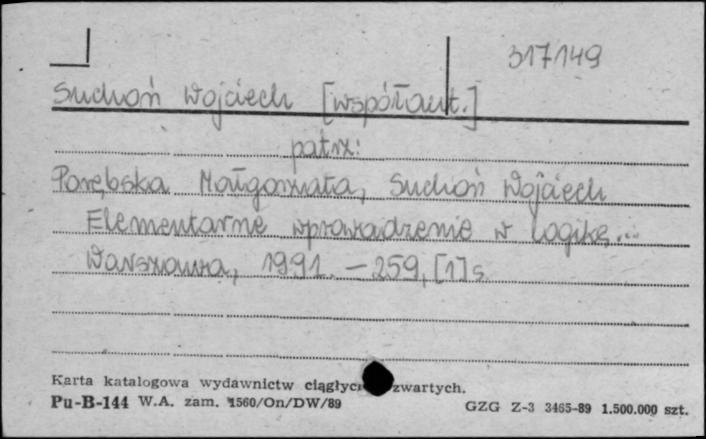 317149
Suchoń Wojciech [współaut.]
patrz:
Porębska Małgorzata, Suchoń Wojciech
Elementarne wprowadzenie w logikę...
Warszawa, 1991. – 259, [1] s.
Karta katalogowa wydawnictw ciągłyc zwartych.
Pu-B-144 W.A. zam. 1560/On/DW/89 GZG Z-3 3465-89 1.500.000 szt.